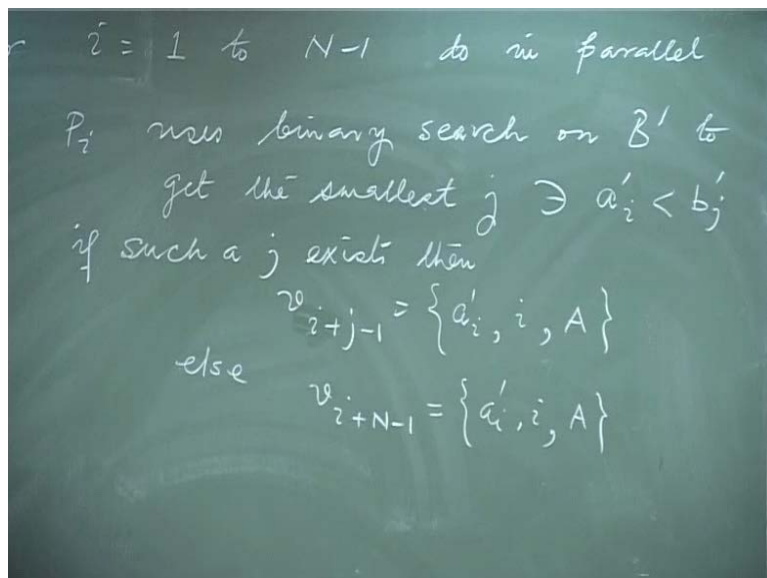 r i = 1 to N-1 do in parallel
P_i uses binary search on B' to
get the smallest j ∋ a'_i < b'_j
if such a j exists then
v_{i+j-1} = {a'_i, i, A}
else v_{i+N-1} = {a'_i, i, A}